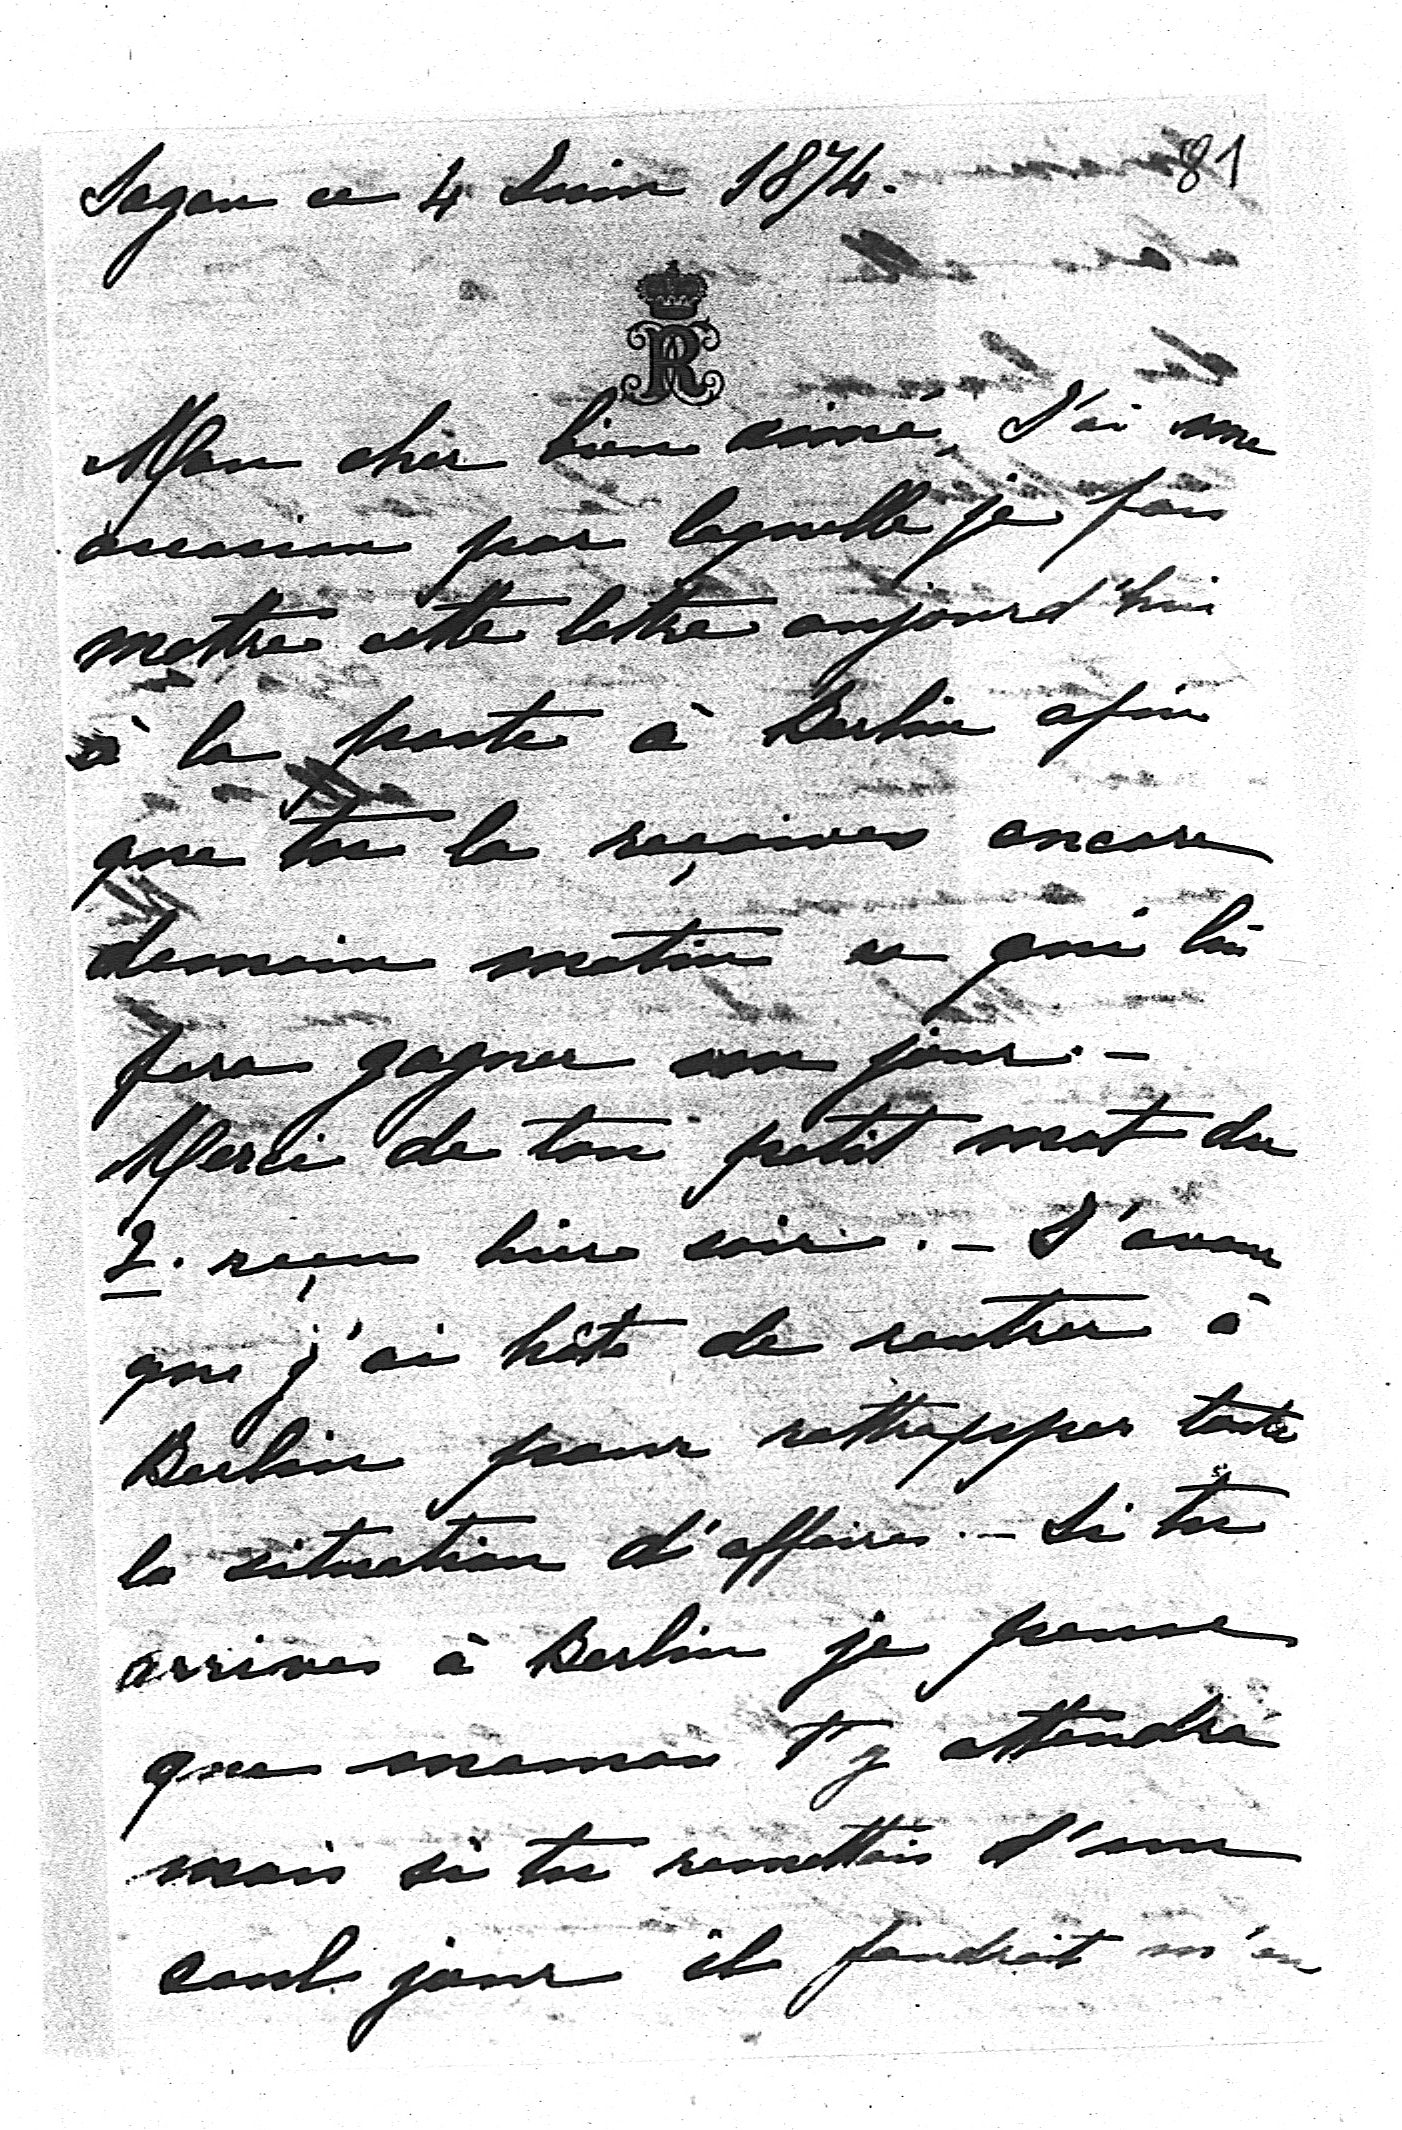 Sagan ce 4 Juin 1874.
81
R
Mon cher bien aimé, J'ai une
occasion par laquelle je fais
mettre cette lettre aujourd'hui
à la poste à Berlin afin
que tu la reçoives encore
demain matin ce qui lui
fera gagner un jour. –
Merci de ton petit mot du
2. reçu hier soir. – J'avoue
que j'ai hâte de rentrer à
Berlin pour rattrapper toute
la situation d'affaires. – Si tu
arrives à Berlin je pense
que maman t'y attendra
mais si tu remettais d'un
seul jour il faudrait m'en